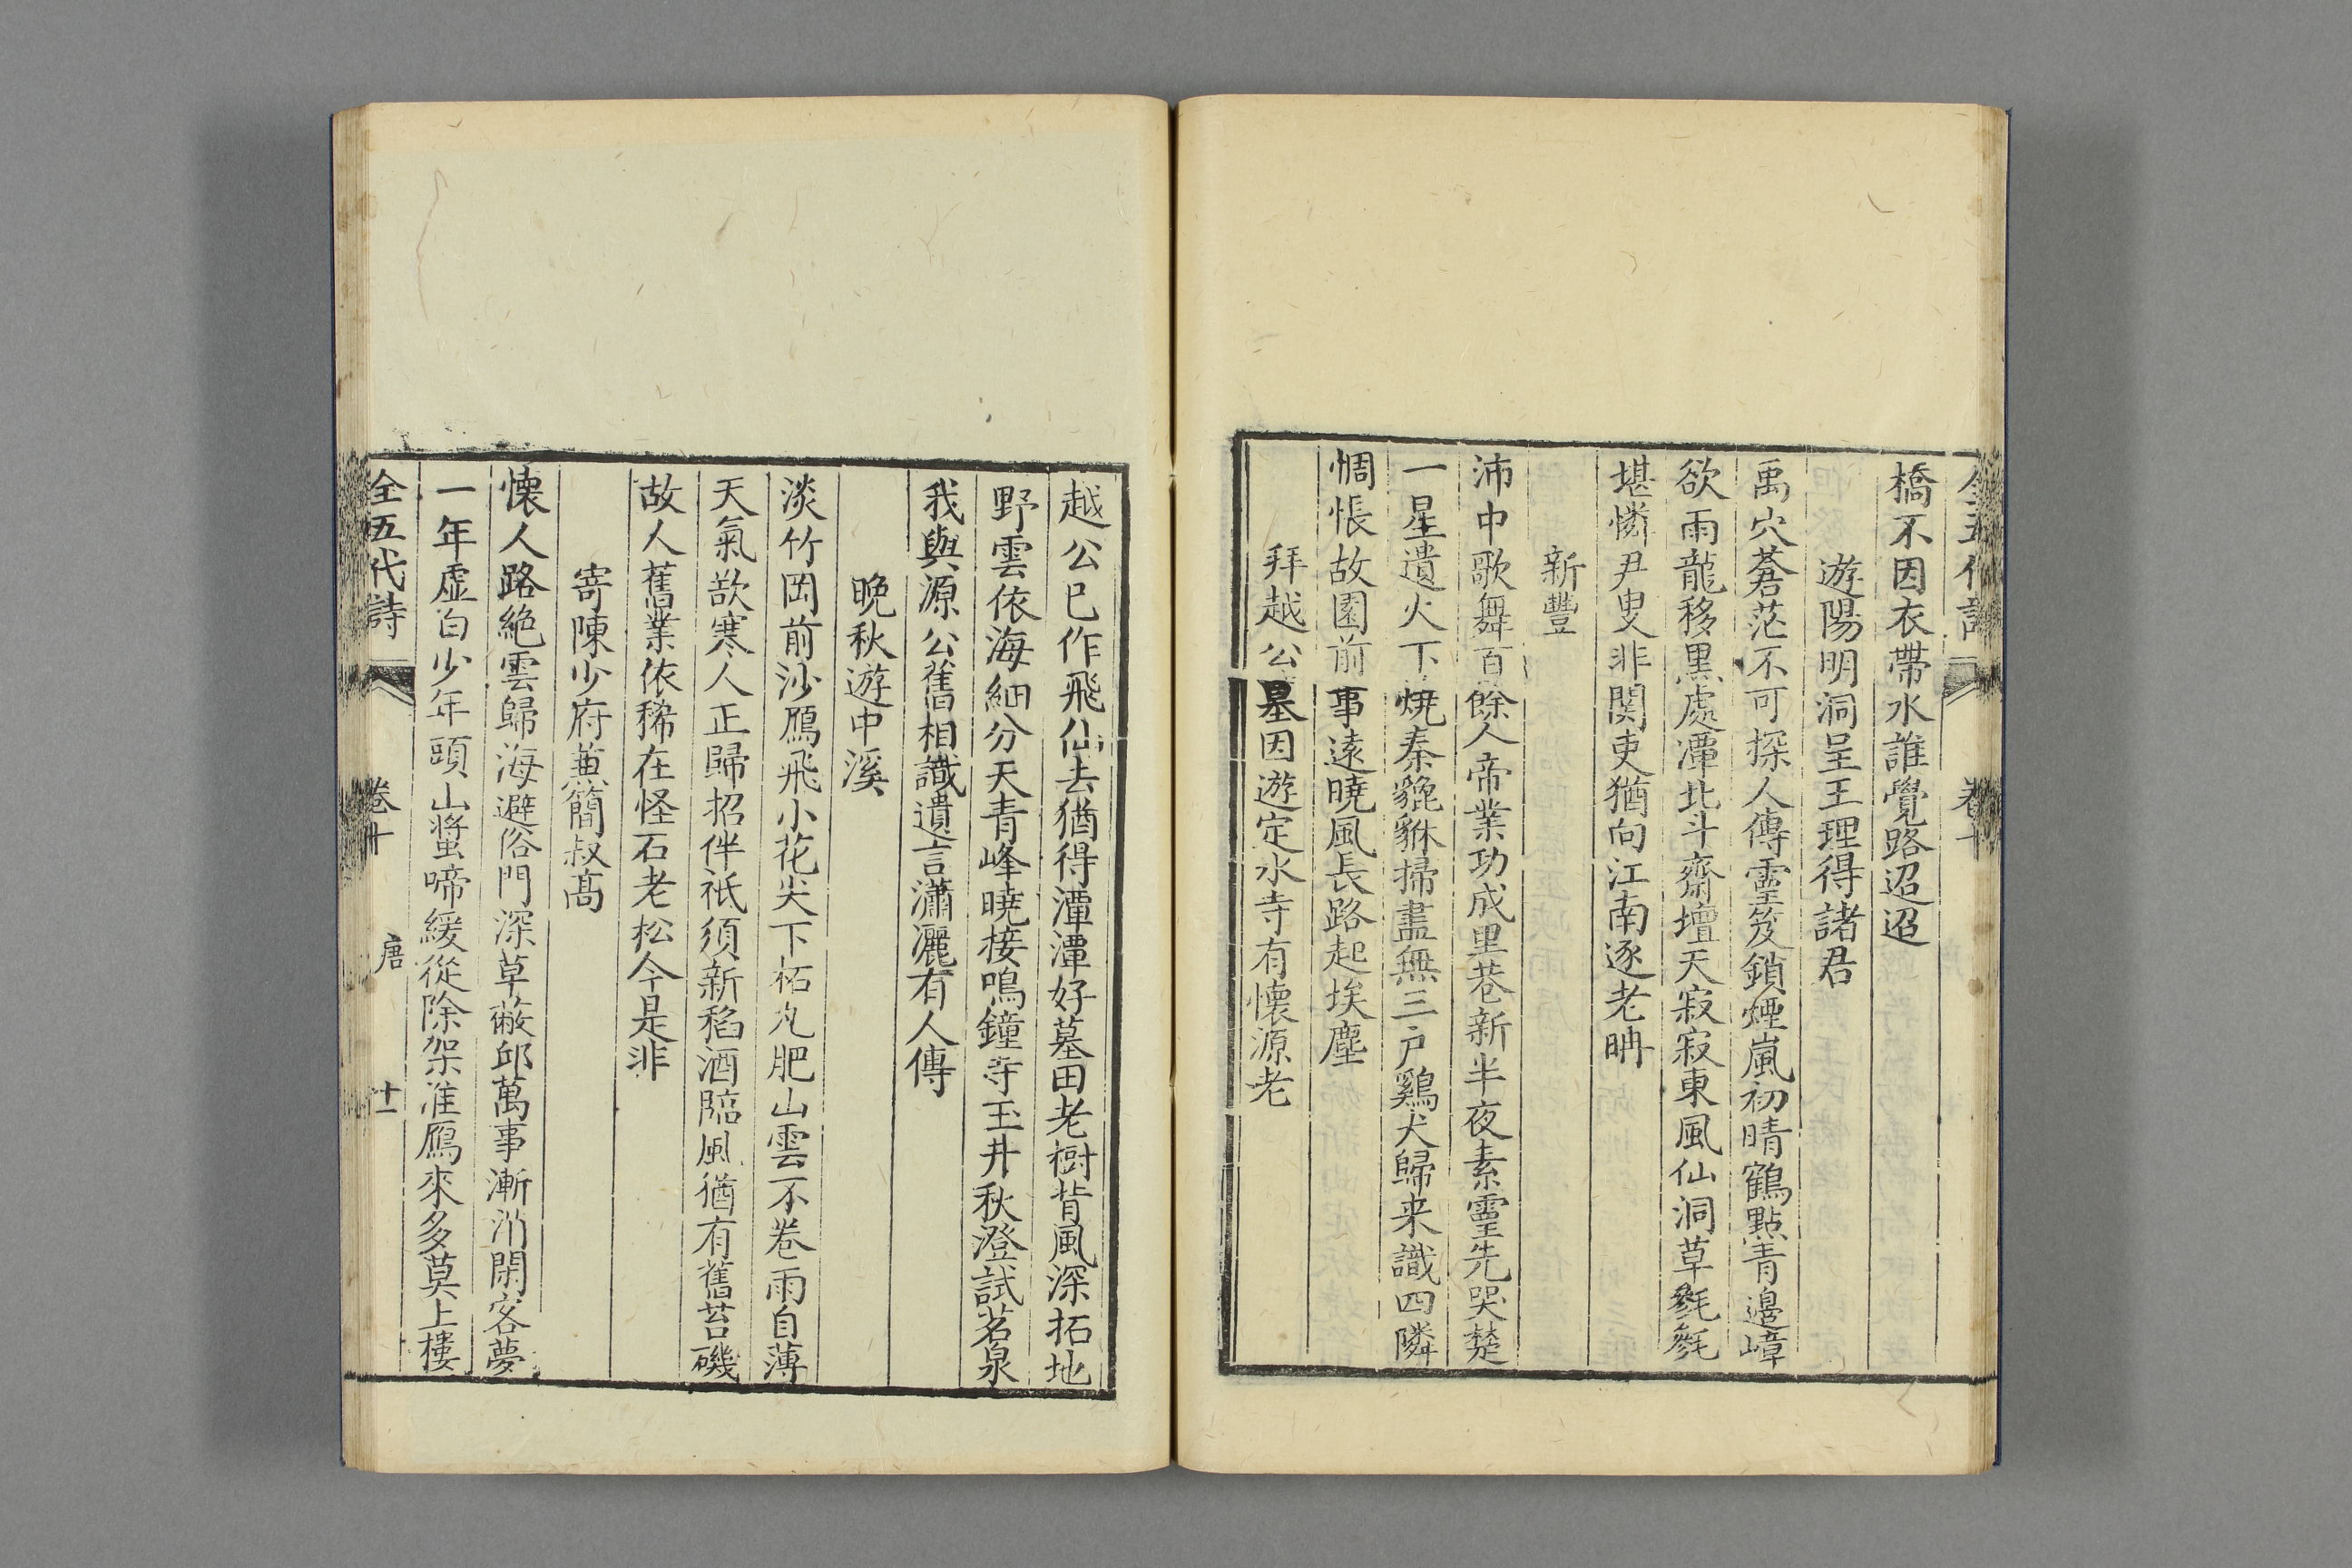 全五代詩 卷十
橋不因衣帶水誰覺路迢迢
遊陽明洞呈王理得諸君
禹穴蒼茫不可探人傳靈笈鎖煙嵐初晴鶴點青邊嶂
欲雨龍移黑處潭北斗齋壇天寂寂東風仙洞草毿毿
堪憐尹叟非関吏猶向江南逐老聃
新豐
沛中歌舞百餘人帝業功成里巷新半夜素靈先哭楚
一星遺火下燒秦貔貅掃盡無三户鷄犬歸来識四隣
惆悵故園前事遠曉風長路起埃塵
拜越公墓因遊定水寺有懷源老
越公已作飛仙去猶得潭潭好墓田老樹背風深拓地
野雲依海細分天青峰曉接鳴鐘寺玉井秋澄試茗泉
我與源公舊相識遺言瀟灑有人傳
晚秋遊中溪
淡竹岡前沙鴈飛小花尖下柘丸肥山雲不卷雨自薄
天氣欲寒人正歸招伴祇須新稻酒臨風猶有舊苔磯
故人舊業依稀在怪石老松今是非
寄陳少府兼簡叔高
懷人路絶雲歸海避俗門深草蔽邱萬事漸消閑客夢
一年虛白少年頭山螿啼緩從除架淮鴈來多莫上樓
全五代詩 卷十 唐 十一